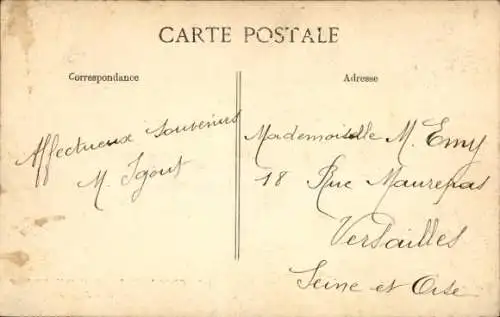 CARTE POSTALE
Correspondance
Affectueux Souvenirs
M. Igout
Adresse
Mademoiselle M. Emy
18 Rue Maurepas
Versailles
Seine et Oise